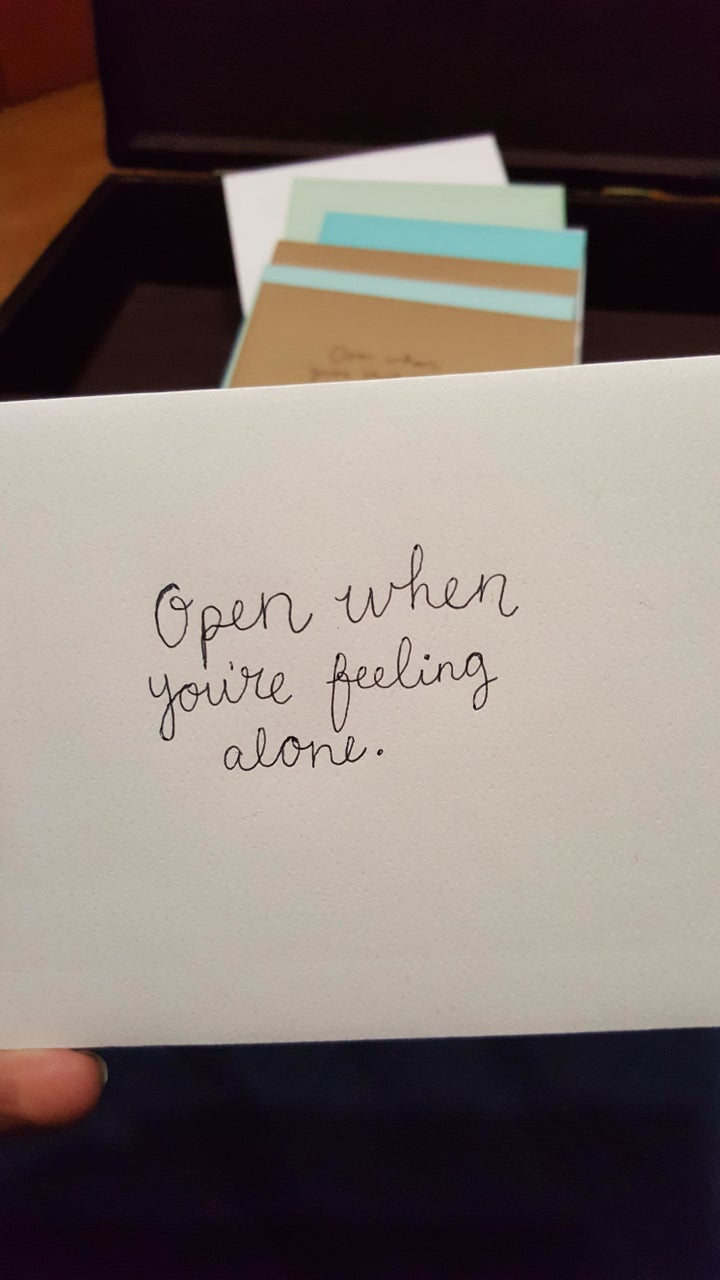 Open when
you're
Open when
you're feeling
alone.